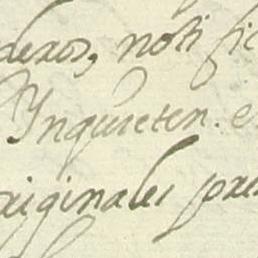 deros, noti fic
Ynquieten. e
riginales pre